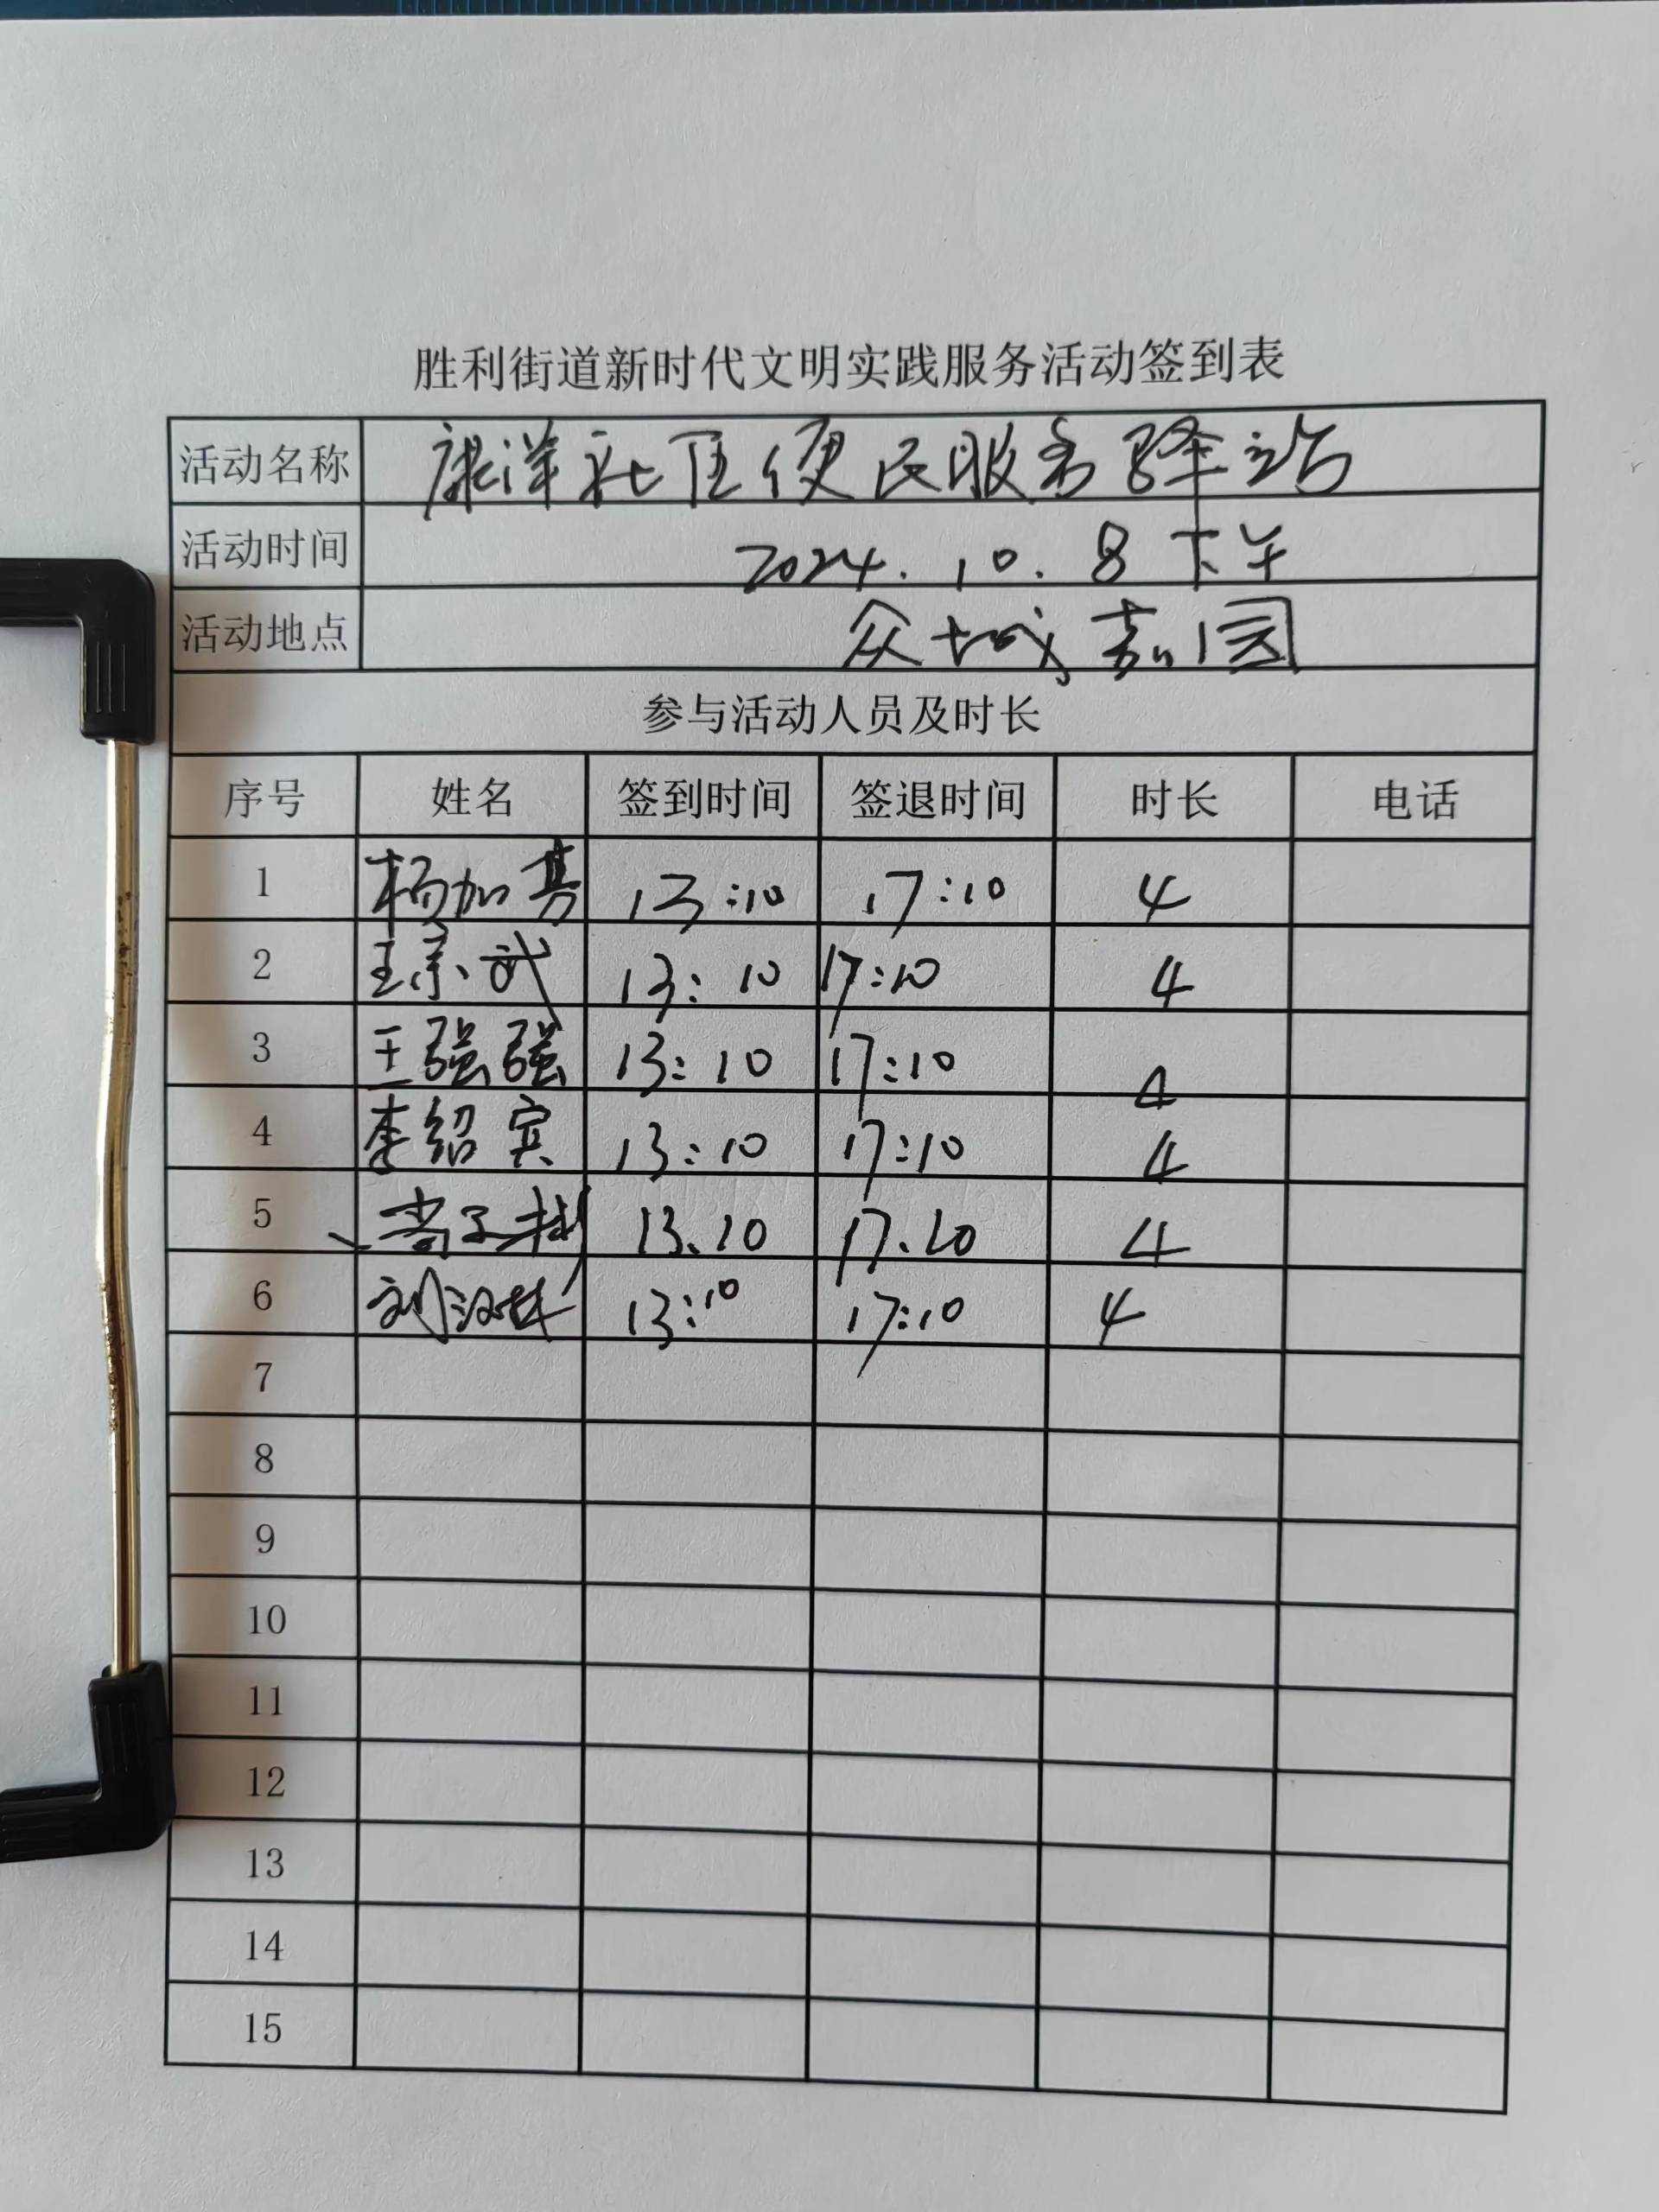 胜利街道新时代文明实践服务活动签到表
活动名称 康洋社区便民服务驿站
活动时间 2024.10.8 下午
活动地点 众城嘉园
参与活动人员及时长
序号 姓名 签到时间 签退时间 时长 电话
1 杨加 13:10 17:10 4
2 王宗武 13:10 17:10 4
3 王强强 13:10 17:10 4
4 李绍宾 13:10 17:10 4
5 13.10 17.10 4
6 刘汉林 13:10 17:10 4
7
8
9
10
11
12
13
14
15